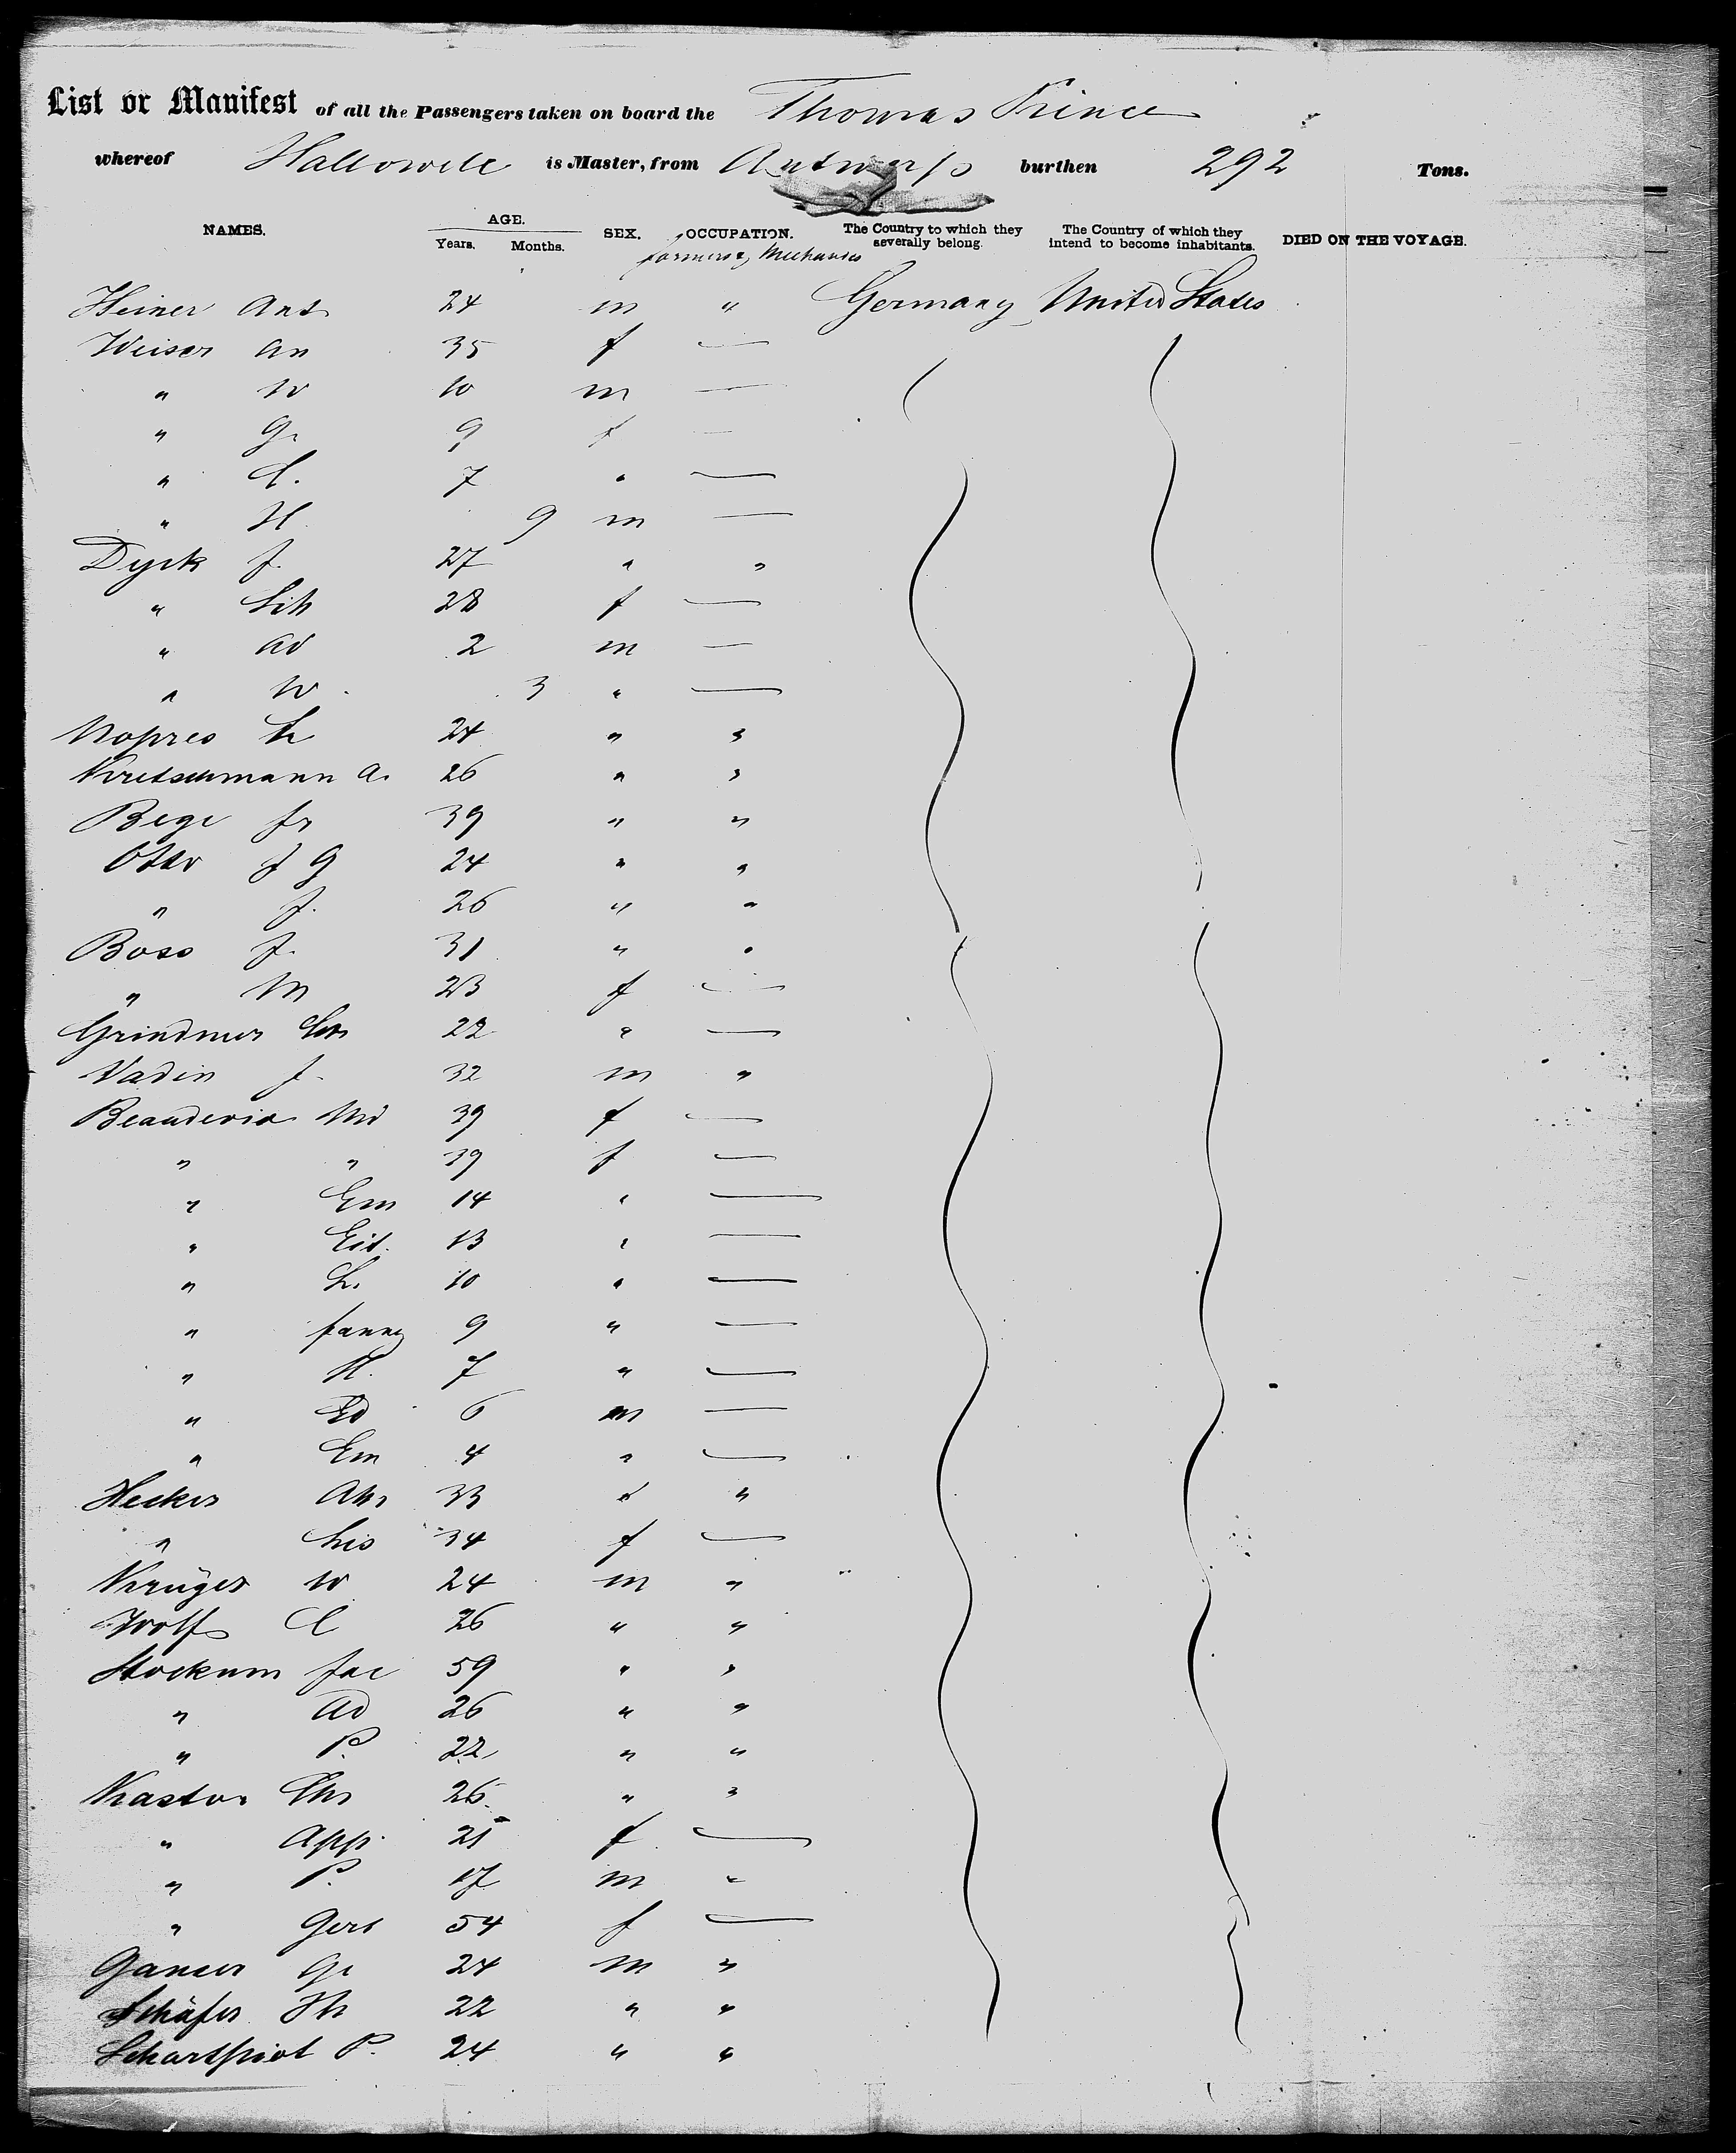 List or Manifest of all the Passengers taken on board the Thomas Prince
whereof Hallowell is Master, from Antwerp burthen 292 Tons.
NAMES. AGE. Years. Months. SEX. OCCUPATION. The Country to which they severally belong. The Country of which they intend to become inhabitants. DIED ON THE VOYAGE.
farmers & Mechanics
Heiner Ant 24 m " Germany United States
Weiser An 35 f —
" W 10 m —
" G. 9 f —
" C. 7 " —
" H. 9 m —
Dyck J. 27 " "
" Lih 28 f —
" Ad 2 m —
" W. 3 " —
Nopres L 24 " "
Kretschmann A. 26 " "
Bege fr 39 " "
Otto J G 24 " "
" J. 26 " "
Boss J. 31 " "
" M 23 f —
Grindmer 22 " —
Vadin J. 32 m "
Beauderia Md 39 f —
" " 39 f —
" Em 14 " —
" Eit. 13 " —
" L. 10 " —
" fanny 9 " —
" H. 7 " —
" Ed 6 m —
" Em 4 " —
Hecker 33 " "
" Lis 34 f —
Krüger W 24 m "
Wolf C 26 " "
Stockum Jac 59 " "
" Ad 26 " "
" P. 22 " "
Kastor Chr 26 " "
" App. 21 f —
" P. 17 m "
" Gert 54 f —
Ganser Gr 24 m "
Schäfer Th 22 " "
P. 24 " "